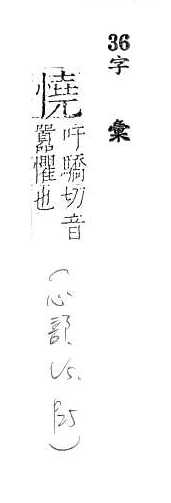 36字彙
憢
吁驕切音
囂懼也
(心部 U5. P25)